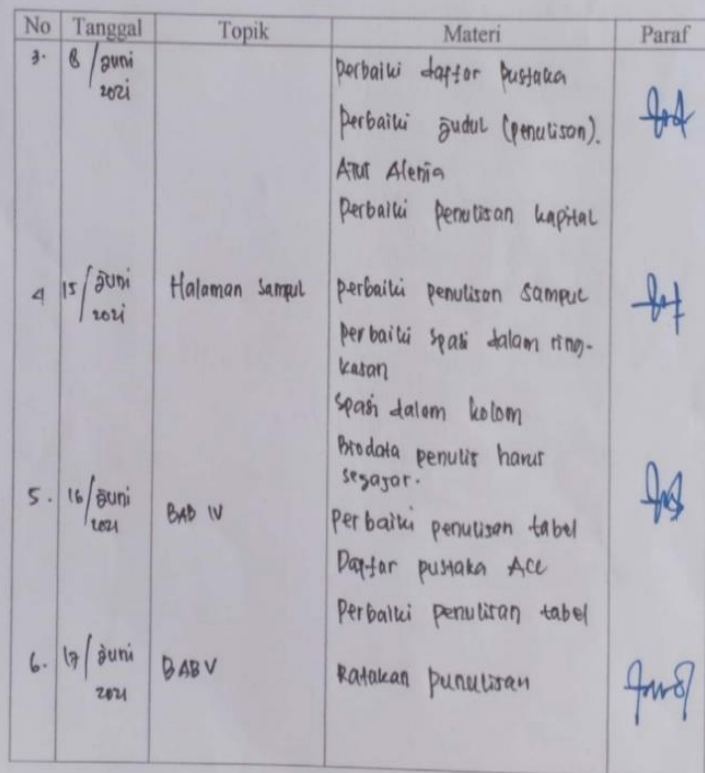 No Tanggal Topik Materi Paraf
3. 8/Juni 2021 Perbaiki daftar Pustaka
Perbaiki Judul (penulisan).
Atur Alenia
Perbaiki Penulisan kapital
4 15/Juni 2021 Halaman Sampul perbaiki penulisan sampul
perbaiki spasi dalam ring-
kasan
spasi dalam kolom
Biodata penulis harus
segajar.
5. 16/Juni 2021 BAB IV Perbaiki penulisan tabel
Daftar pustaka ACC
Perbaiki penulisan tabel
6. 17/Juni 2021 BAB V Ratakan punulisan